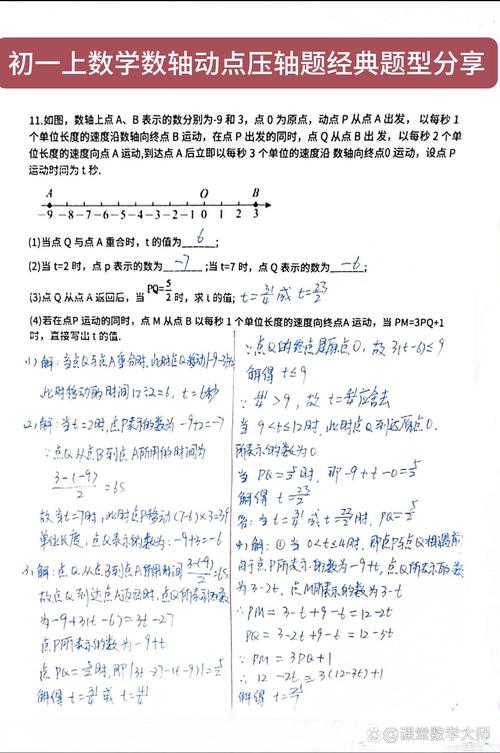 初一上数学数轴动点压轴题经典题型分享
11.如图，数轴上点 A、B 表示的数分别为-9 和 3，点 0 为原点，动点 P 从点 A 出发， 以每秒 1
个单位长度的速度沿数轴向终点 B 运动，在点 P 出发的同时，点 Q 从点 B 出 发，以每秒 2 个单
位长度的速度向点 A 运动,到达点 A 后立即以每秒 3 个单位的速度沿 数轴向终点0 运动，设点 P
运动时间为 t 秒.
A O B
-9 -8 -7 -6 -5 -4 -3 -2 -1 0 1 2 3
(1)当点 Q 与点 A 重合时，t 的值为 6 ;
(2)当 t=2 时，点 p 表示的数为 -7 ;当 t=7 时，点 Q 表示的数为 -6 ;
(3)点 Q 从点 A 返回后，当 PQ=5/2 时，求 t 的值; t=31/4 或 t=23/2
(4)若在点P 运动的同时，点 M 从点 B 以每秒 1 个单位长度的速度向终点A 运动，当 PM=3PQ+1
时，直接写出 t 的值.
1) 解：当点Q与点A重合时,此时点Q移动|-9-3|=12
此时移动的时间12÷2=6，t=6秒
2) 解：当t=2时,点P表示的数为-9+2=-7
∵点Q从点B到点A所用的时间为
3-(-9)/2=6s
故当t=7时，此时点P移动(7-6)×3=3个
单位长度，点Q表示的数为-9+3=-6
3) 解：点Q从点B到点A所用时间3-(-9)/2=6s
故点Q到达点A返回时,点Q所表示的数
为-9+3(t-6)=3t-27
点P所表示的数为-9+t
点PQ=5/2时,即|3t-27-(t-9)|=5/2
解得 t=31/4 或 t=41/4
∵点Q的终点是原点0，故3(t-6)≤9
解得 t≤9
∵41/4>9，故 t=41/4应舍去
当9<t≤12时,此时点Q到达原点0.
所表示的数为0
当PQ=5/2时，即-9+t-0=5/2
解得 t=23/2
答：当t=31/4 或 t=23/2时, PQ=5/2
4) 解：①当0<t≤4时，即点P与点Q相遇前
时点P所表示的数为-9+t,点Q所表示的数
为3-2t，点M所表示的数为3-t
∴PM=3-t+9-t=12-2t
PQ=3-2t+9-t=12-3t
∵PM=3PQ+1
∴12-2t=3(12-3t)+1
解得
@课堂数学大师